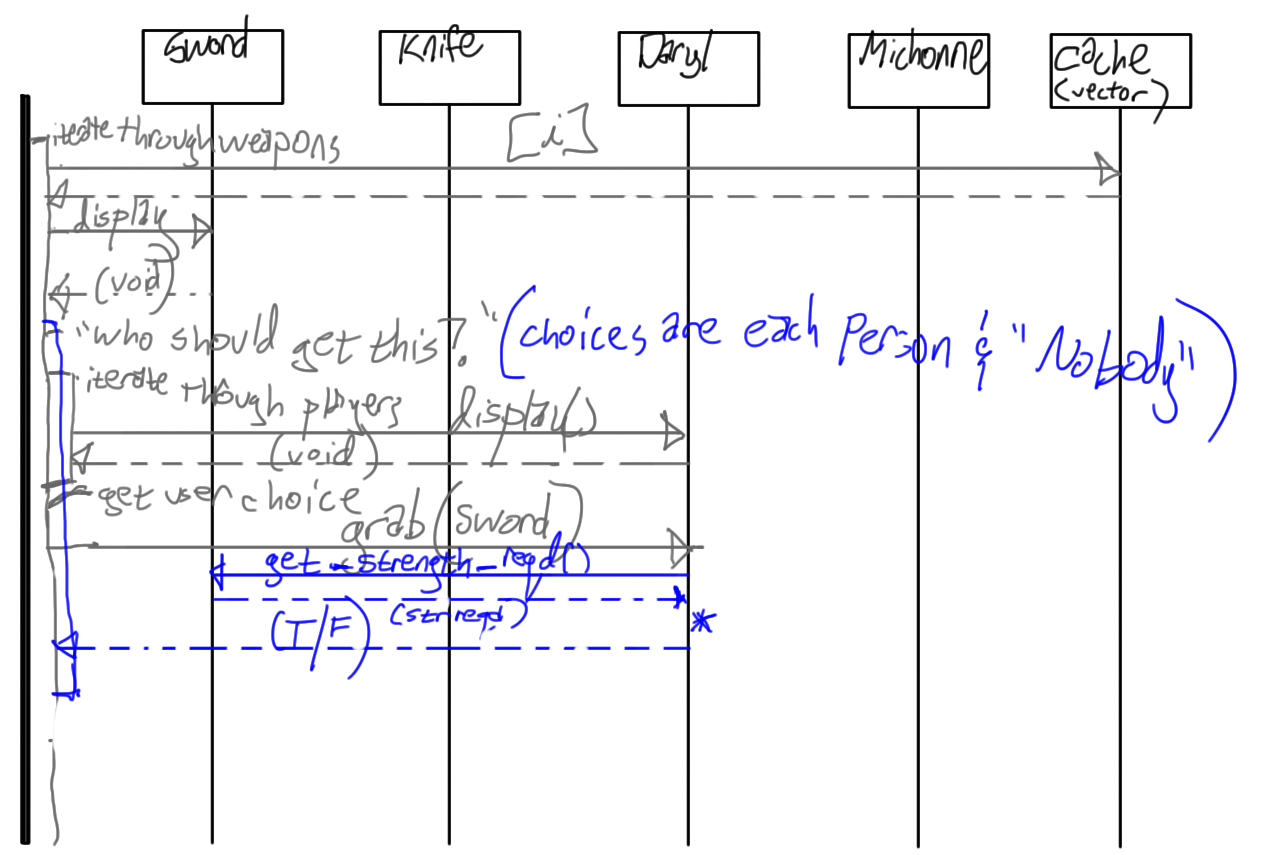 Sword
Knife
Daryl
Michonne
Cache
(vector)
iterate through weapons
[i]
display
(void)
"who should get this?" (choices are each Person & "Nobody")
iterate through players
display()
(void)
get user choice
grab(Sword)
get_strength_reqd()
(str reqd)
*
(T/F)